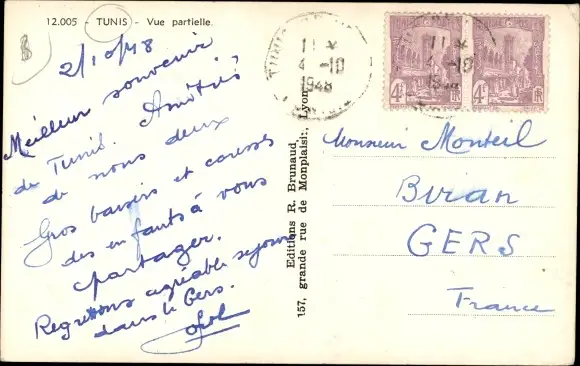 12.005 - TUNIS - Vue partielle.
2/10/48
Meilleur souvenir
de Tunis. Amitiés
de nous deux
Gros baisers et caresses
des enfants à vous
partager.
Regrettons agréable séjour
dans le Gers.
Editions R. Brunaud,
157, grande rue de Monplaisir, Lyon
TUNIS
11 *
4 -10
1948
11 *
4 -10
1948
4F
RF
4F
RF
Monsieur Monteil
Biran
GERS
France